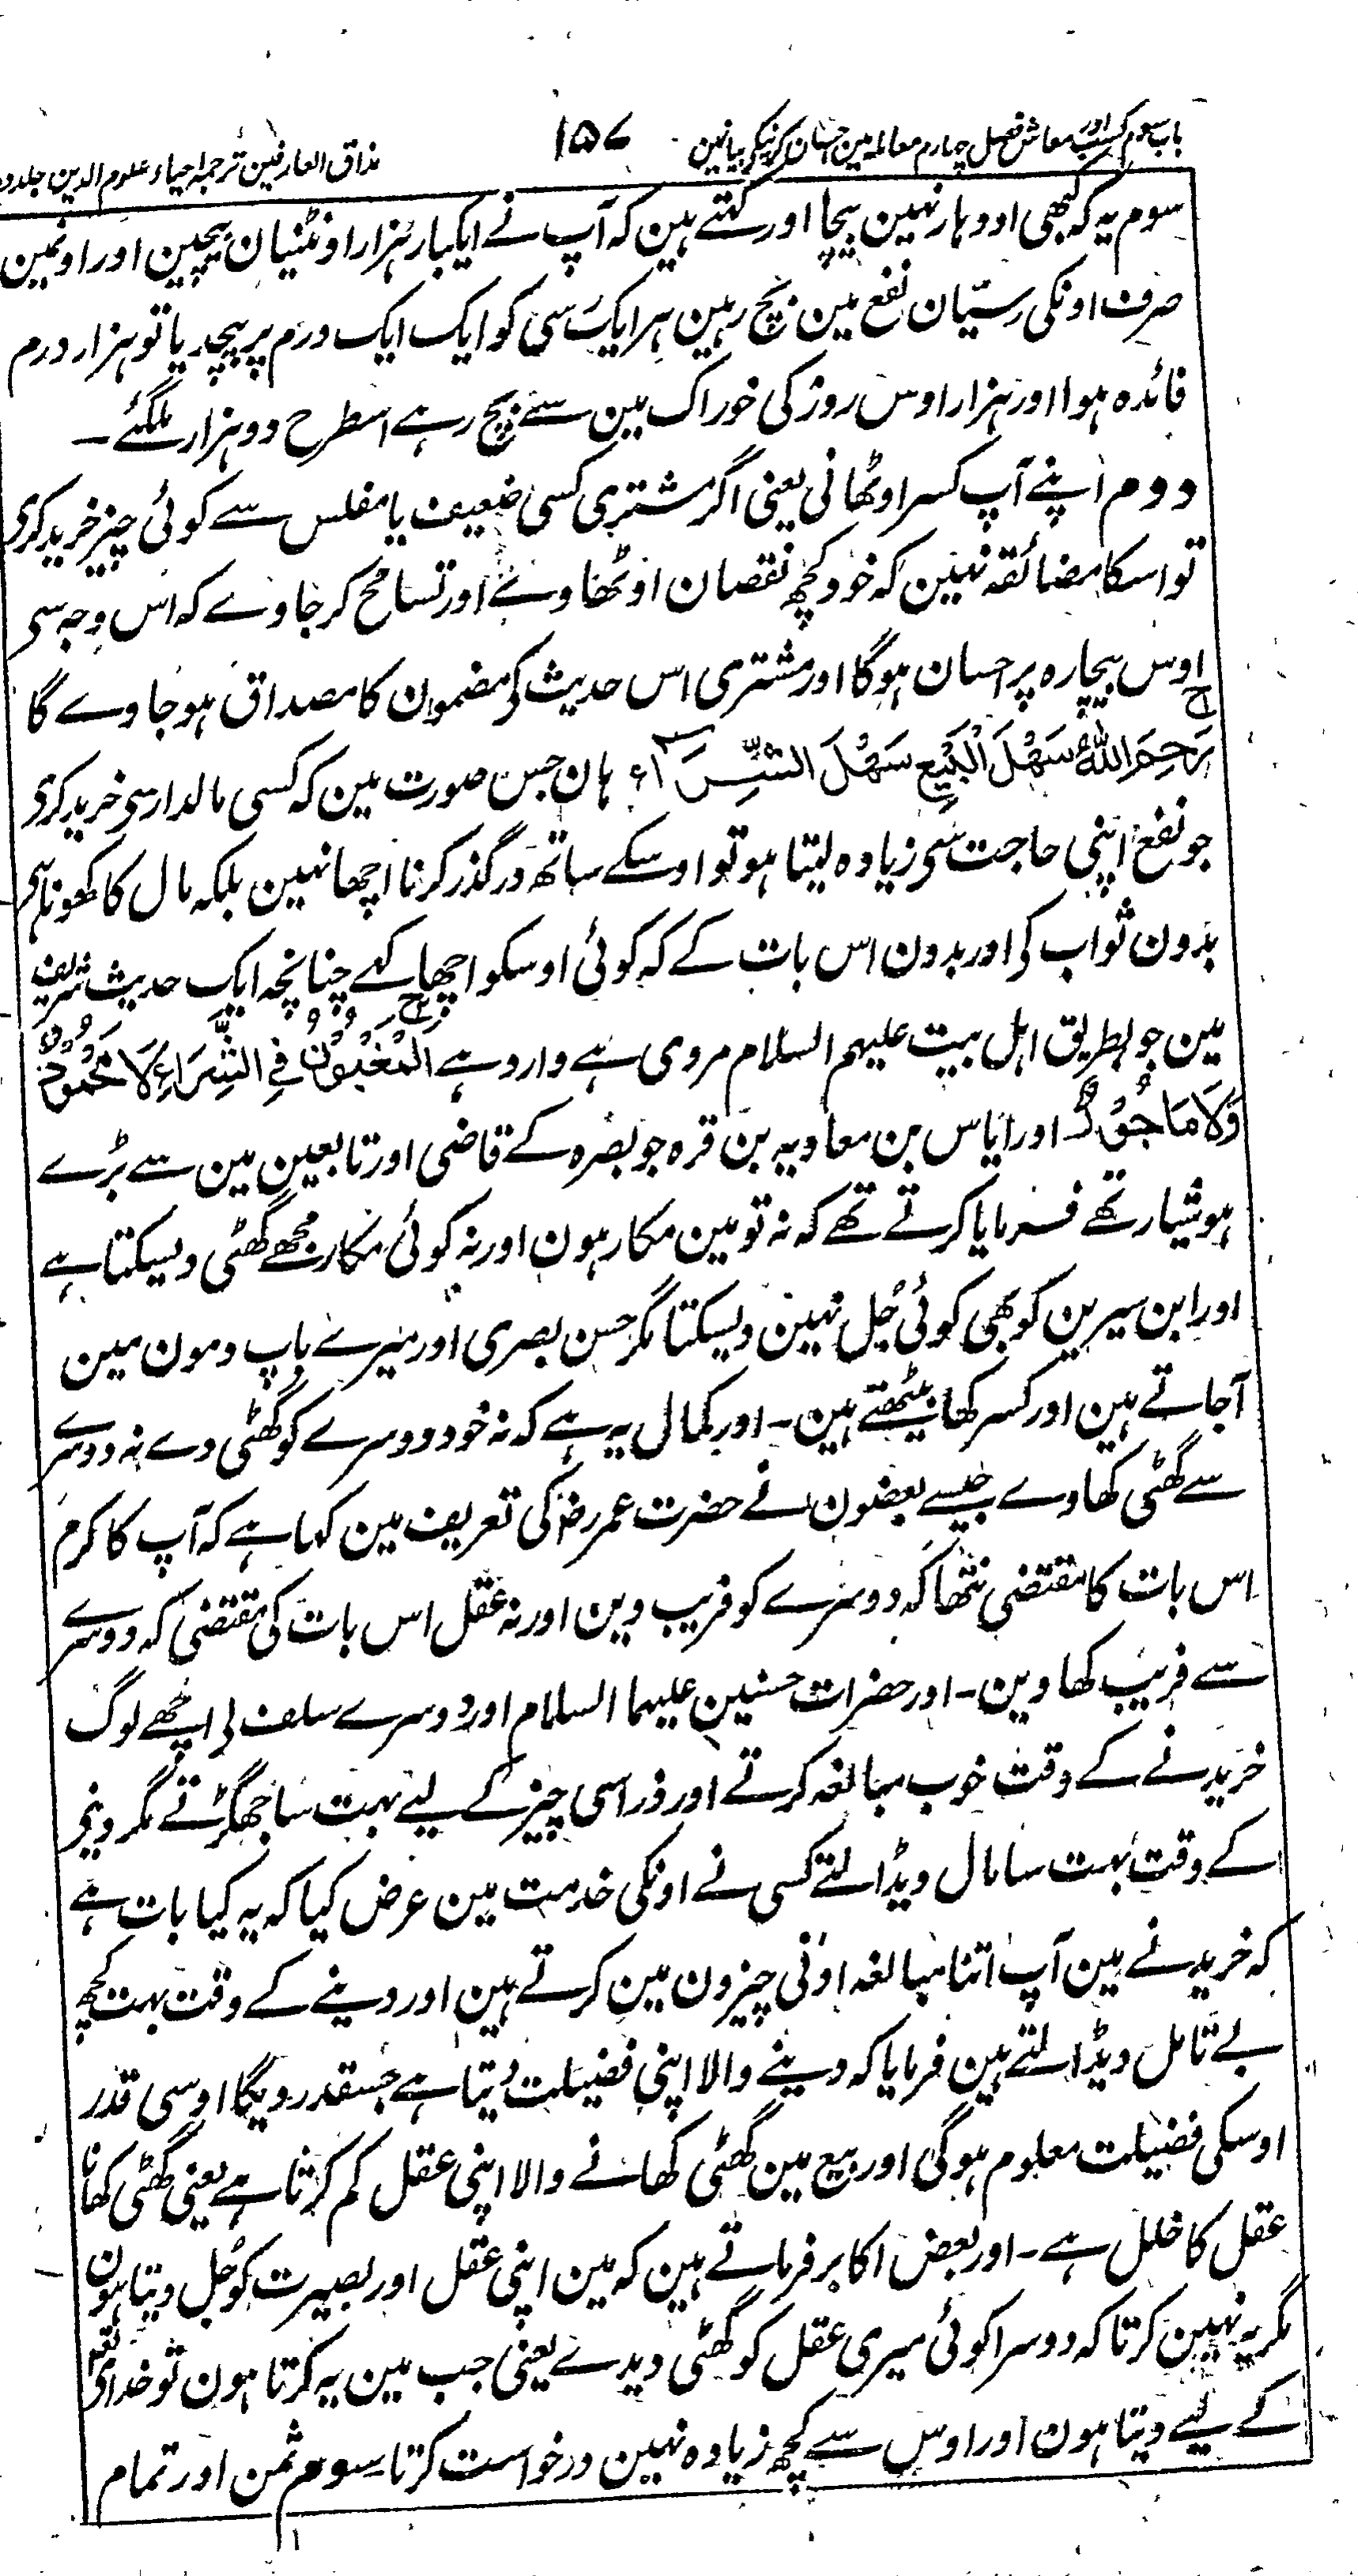 باب سوم کسب اور معاش فصل چہارم معاملہ مین احسان کرنیکے بیانمین
۱۵۷
مذاق العارفین ترجمہ احیاء علوم الدین جلد دو
سوم یہ کہ کبھی اودہار نہین بیچا اور کہتے ہین کہ آپ نے ایکبار ہزار اونٹنیان بیچین اور اونمین
صرف اونکی رسیّان نفع مین بچ رہین ہر ایک رسی کو ایک ایک درم پر بیچدیا تو ہزار درم
فائدہ ہوا اور ہزار اوس روز کی خوراک مین سے بچ رہے اسطرح دو ہزار ملگئے ۔
دوم اپنے آپ کسر اوٹھانی یعنی اگر مشتری کسی ضعیف یا مفلس سے کوئی چیز خرید کری
تو اسکا مضائقہ نہین کہ خود کچھ نقصان اوٹھاوے اور تسامح کر جاوے کہ اس وجہ سی
اوس بیچارہ پر احسان ہوگا اور مشتری اس حدیث کی مضمون کا مصداق ہو جاوے گا
رَحِمَ اللّٰهُ سَهْلَ الْبَيْعِ سَهْلَ الشِّرَاءِ ہان جس صورت مین کہ کسی مالدار سی خرید کری
جو نفع اپنی حاجت سی زیادہ لیتا ہو تو اوسکے ساتھ درگذر کرنا اچھا نہین بلکہ مال کا کھونا ہی
بدون ثواب کی اور بدون اس بات کے کہ کوئی اوسکو اچھا کہے چنانچہ ایک حدیث شریف
مین جو بطریق اہل بیت علیہم السلام مروی ہے وارد ہے اَلْمَغْبُوْنُ فِي الشِّرَاءِ لَا مَحْمُوْدٌ
وَّلَا مَاجُوْرٌ اور ایاس بن معاویہ بن قرہ جو بصرہ کے قاضی اور تابعین مین سے بڑے
ہوشیار تھے فرمایا کرتے تھے کہ نہ تو مین مکار ہون اور نہ کوئی مکار مجھے گھٹی دیسکتا ہے
اور ابن سیرین کو بھی کوئی جُل نہین دیسکتا مگر حسن بصری اور میرے باپ دمون مین
آجاتے ہین اور کسر کھا بیٹھتے ہین ۔ اور کمال یہ ہے کہ نہ خود دوسرے کو گھٹی دے نہ دوسرے
سے گھٹی کھاوے جیسے بعضون نے حضرت عمر رضؓ کی تعریف مین کہا ہے کہ آپ کا کرم
اس بات کا مقتضی نتھا کہ دوسرے کو فریب دین اور نہ عقل اس بات کی مقتضی کہ دوسرے
سے فریب کھاوین ۔ اور حضرات حسنین علیہما السلام اور دوسرے سلف کے اچھے لوگ
خریدنے کے وقت خوب مبالغہ کرتے اور ذراسی چیز کے لیے بہت سا جھگڑتے مگر دینے
کے وقت بہت سا مال دیڈالتے کسی نے اونکی خدمت مین عرض کیا کہ یہ کیا بات ہے
کہ خریدنے مین آپ اتنا مبالغہ ادنی چیزون مین کرتے ہین اور دینے کے وقت بہت کچھ
بے تامل دیڈالتے ہین فرمایا کہ دینے والا اپنی فضیلت دیتا ہے جسقدر دیگا اوسی قدر
اوسکی فضیلت معلوم ہوگی اور بیع مین گھٹی کھانے والا اپنی عقل کم کرتا ہے یعنی گھٹی کھانا
عقل کا خلل ہے ۔ اور بعض اکابر فرماتے ہین کہ مین اپنی عقل اور بصیرت کو جُل دیتا ہون
مگر یہ نہین کرتا کہ دوسرا کوئی میری عقل کو گھٹی دیدے یعنی جب مین یہ کرتا ہون تو خدای تعم
کے لیے دیتا ہون اور اوس سے کچھ زیادہ نہین درخواست کرتا سوم ثمن اور تمام